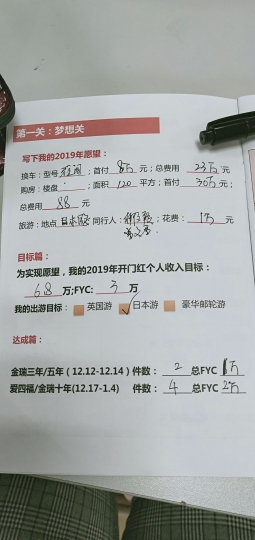 第一关：梦想关
写下我的2019年愿望：
换车：型号雅阁；首付8万元；总费用23万元
购房：楼盘；面积120平方；首付30万元；
总费用88元
旅游：地点日本 同行人：；花费：1万元
目标篇：
为实现愿望，我的2019年开门红个人收入目标：
68万;FYC:3万
我的出游目标：英国游 ✓日本游 豪华邮轮游
达成篇：
金瑞三年/五年（12.12-12.14）件数：2总FYC 1万
爱四福/金瑞十年(12.17-1.4) 件数：4总FYC 2万